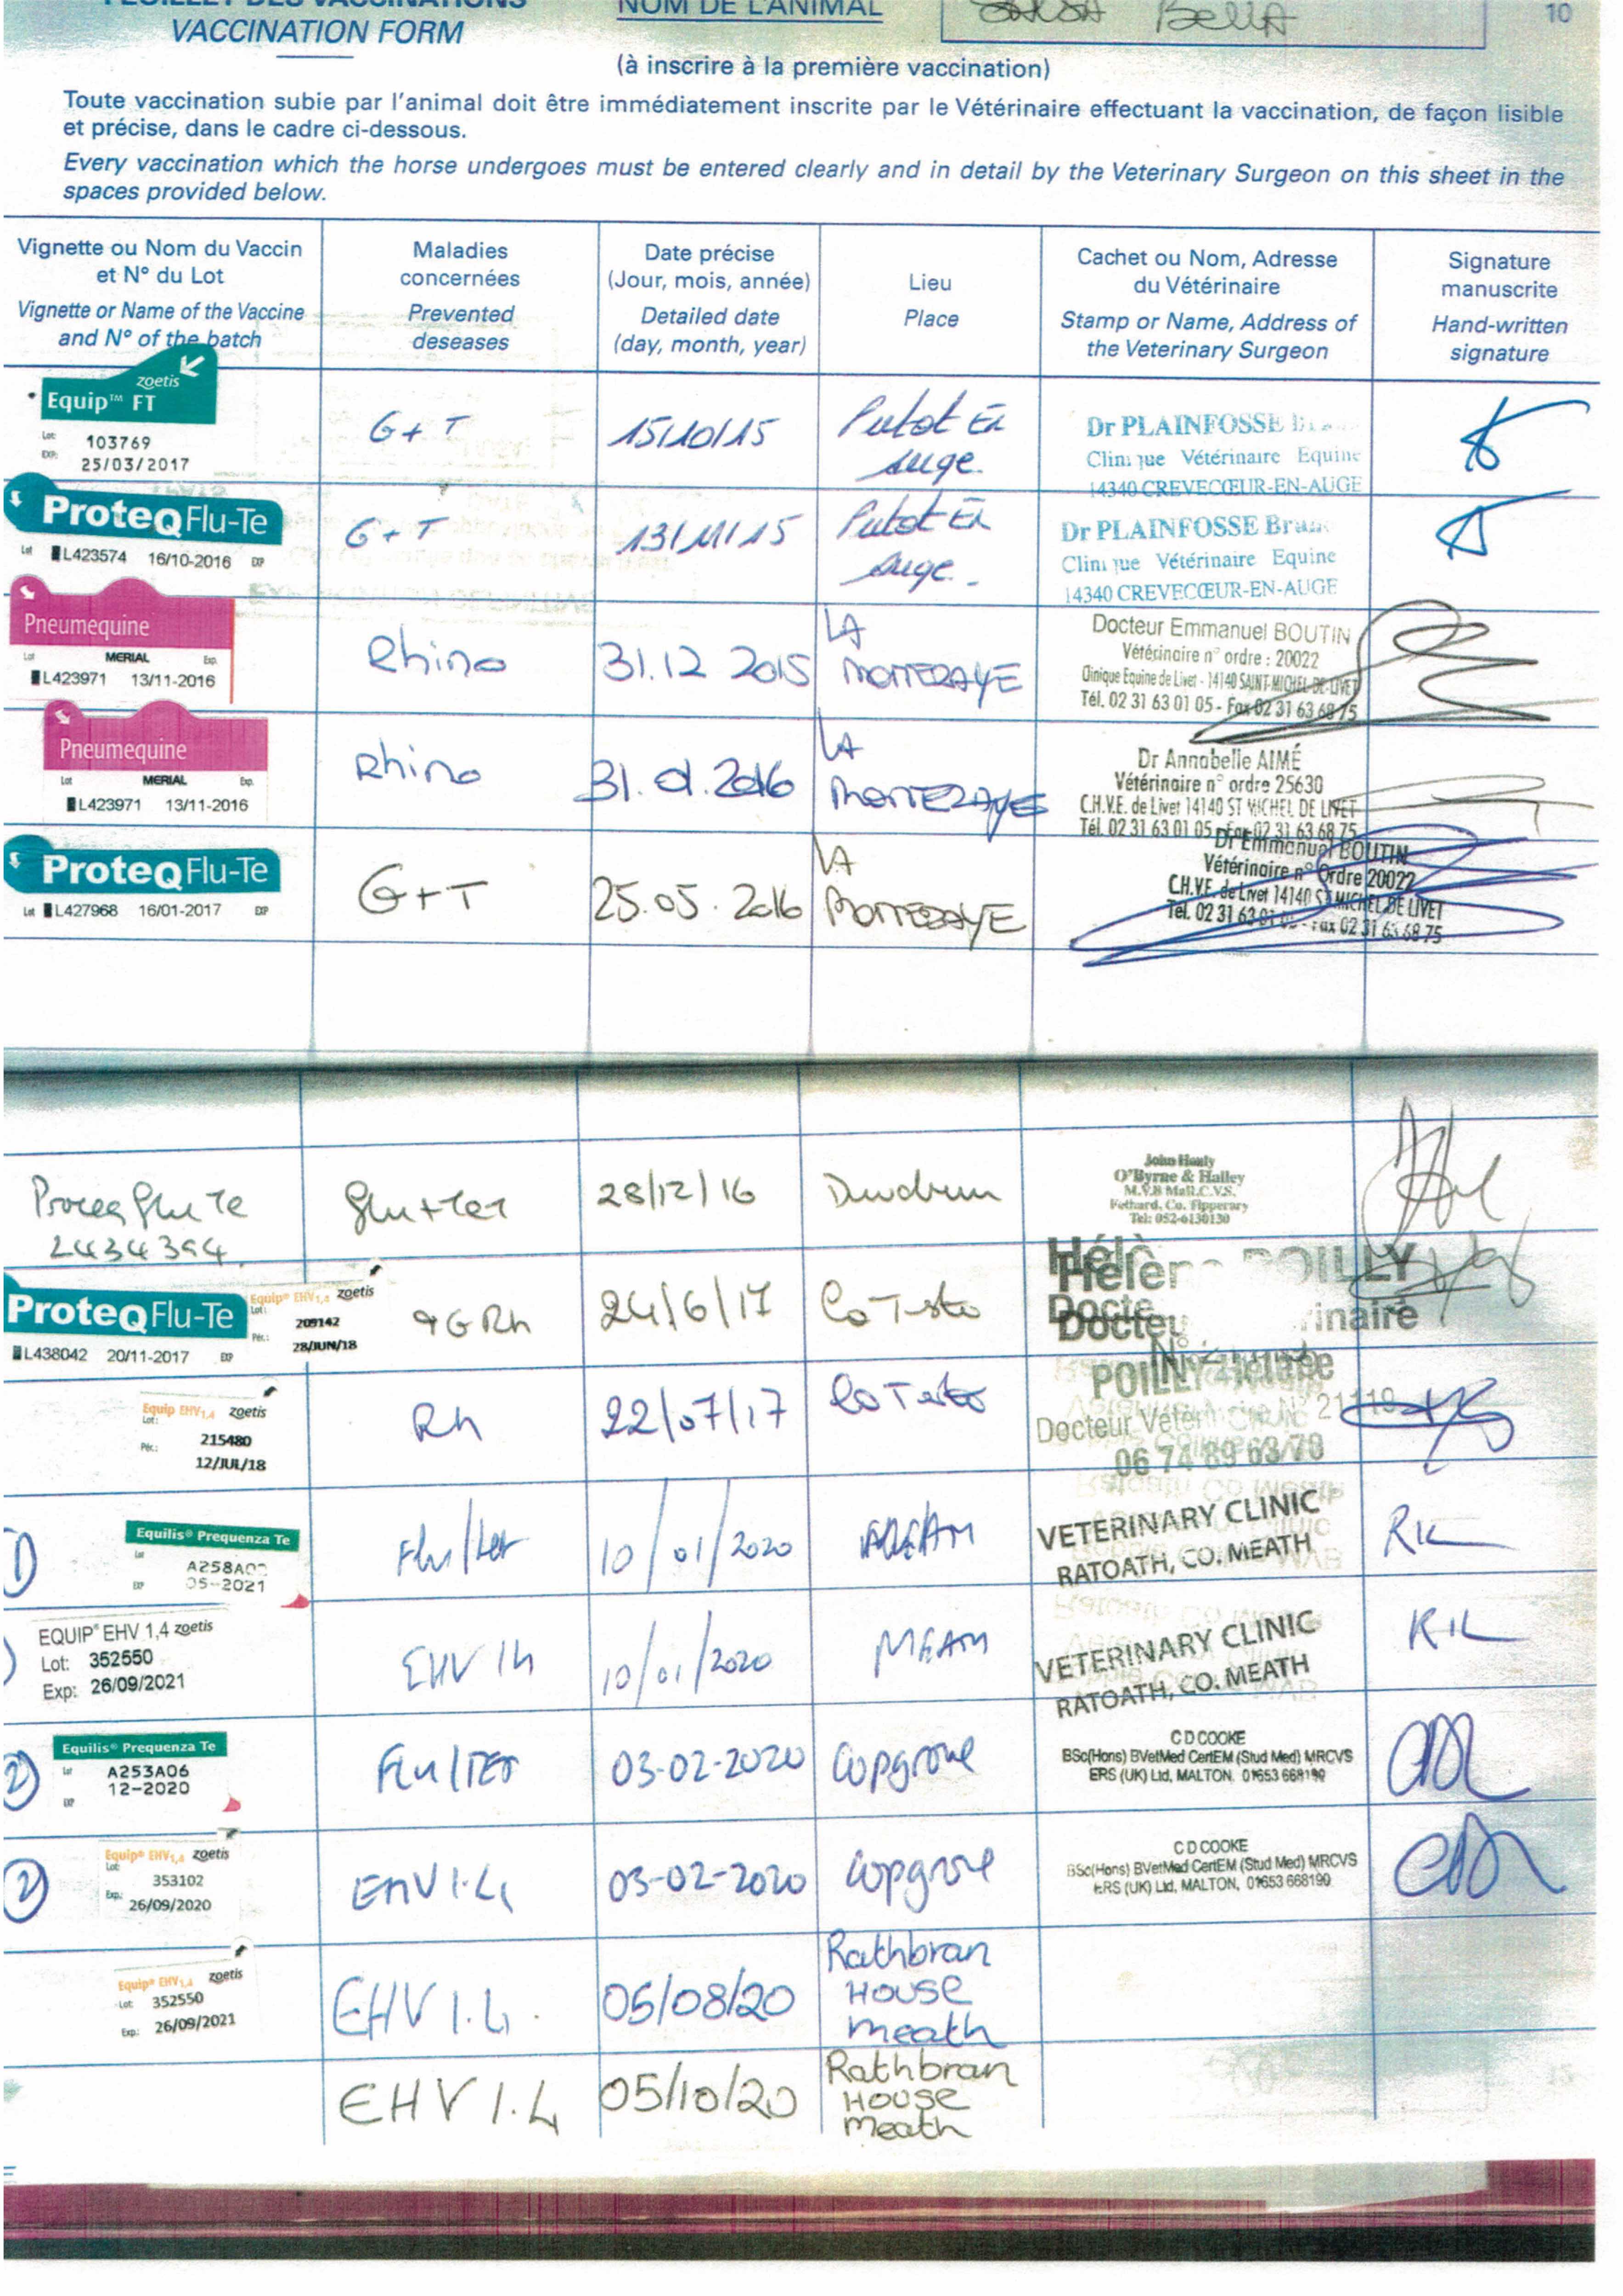 FEUILLET DES VACCINATIONS
VACCINATION FORM
NOM DE L'ANIMAL
Bella
10
(à inscrire à la première vaccination)
Toute vaccination subie par l'animal doit être immédiatement inscrite par le Vétérinaire effectuant la vaccination, de façon lisible
et précise, dans le cadre ci-dessous.
Every vaccination which the horse undergoes must be entered clearly and in detail by the Veterinary Surgeon on this sheet in the
spaces provided below.
Vignette ou Nom du Vaccin
et N° du Lot
Vignette or Name of the Vaccine
and N° of the batch
Maladies
concernées
Prevented
deseases
Date précise
(Jour, mois, année)
Detailed date
(day, month, year)
Lieu
Place
Cachet ou Nom, Adresse
du Vétérinaire
Stamp or Name, Address of
the Veterinary Surgeon
Signature
manuscrite
Hand-written
signature
zoetis
Equip™ FT
Lot: 103769
EXP: 25/03/2017
G+T
15/10/15
Putot En
Auge.
Dr PLAINFOSSE
Clinique Vétérinaire Equine
14340 CREVECŒUR-EN-AUGE
ProteqFlu-Te
Lot L423574 16/10-2016 EXP
G+T
13/11/15
Putot En
Auge.
Dr PLAINFOSSE
Clinique Vétérinaire Equine
14340 CREVECŒUR-EN-AUGE
Pneumequine
Lot MERIAL Exp.
L423971 13/11-2016
Rhino
31.12 2015
LA
MOTTERAYE
Docteur Emmanuel BOUTIN
Vétérinaire n° ordre : 20022
Clinique Equine de Livet - 14140 SAINT-MICHEL-DE-LIVET
Tél. 02 31 63 01 05 - Fax 02 31 63 68 75
Pneumequine
Lot MERIAL Exp.
L423971 13/11-2016
Rhino
31.01.2016
LA
MOTTERAYE
Dr Annabelle AIMÉ
Vétérinaire n° ordre 25630
C.H.V.E. de Livet 14140 ST MICHEL DE LIVET
Tél. 02 31 63 01 05 - Fax 02 31 63 68 75
ProteqFlu-Te
Lot L427968 16/01-2017 EXP
G+T
25.05.2016
LA
MOTTERAYE
Dr Emmanuel BOUTIN
Vétérinaire n° Ordre 20022
C.H.V.E. de Livet 14140 ST MICHEL DE LIVET
Tel. 02 31 63 01 05 - Fax 02 31 63 68 75
Flu Te
2434394
Flu + Tet
28/12/16
Dundrum
John Healy
O'Byrne & Halley
M.V.B Mall.C.V.S.
Fethard, Co. Tipperary
Tel: 052-6130130
ProteqFlu-Te
L438042 20/11-2017 EXP
Equip® EHV1,4 zoetis
Lot: 209142
Pér.: 28/JUN/18
Rh
24/6/17
Hélène POILLY
Docteur
Equip EHV1,4 zoetis
Lot: 215480
Pér.: 12/JUL/18
Rh
22/07/17
POILLY Hélène
Docteur Vétérinaire N° 21110
06 74 89 63 70
1
Equilis® Prequenza Te
Lot A258A02
EXP 05-2021
Flu/tet
10/01/2020
MEATH
VETERINARY CLINIC
RATOATH, CO. MEATH
EQUIP® EHV 1,4 zoetis
Lot: 352550
Exp: 26/09/2021
EHV 1.4
10/01/2020
MEATH
VETERINARY CLINIC
RATOATH, CO. MEATH
2
Equilis® Prequenza Te
Lot A253A06
EXP 12-2020
Flu/TET
03-02-2020
Copgrove
C D COOKE
BSc(Hons) BVetMed CertEM (Stud Med) MRCVS
ERS (UK) Ltd, MALTON. 01653 668190
2
Equip® EHV1,4 zoetis
Lot: 353102
Exp.: 26/09/2020
EHV 1.4
03-02-2020
Copgrove
C D COOKE
BSc(Hons) BVetMed CertEM (Stud Med) MRCVS
ERS (UK) Ltd, MALTON, 01653 668190
Equip® EHV1,4 zoetis
Lot: 352550
Exp.: 26/09/2021
EHV 1.4.
05/08/20
Rathbran
House
Meath
EHV 1.4
05/10/20
Rathbran
House
Meath